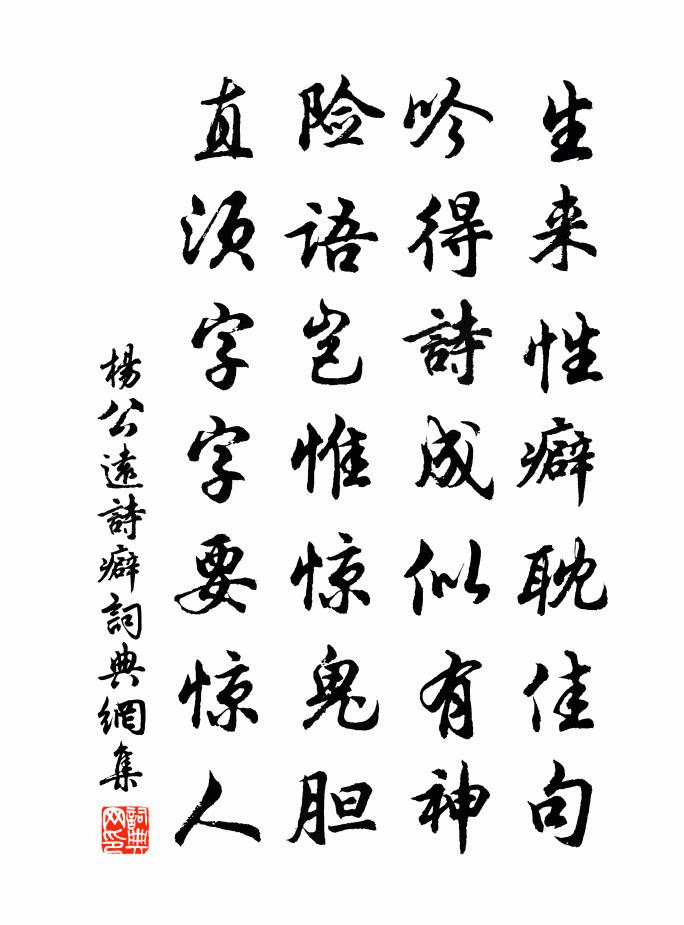 生来性癖耽佳句
吟得詩成似有神
险語岂惟惊鬼胆
直须字字要惊人
楊公遠詩癖詞典網集
詞典网印